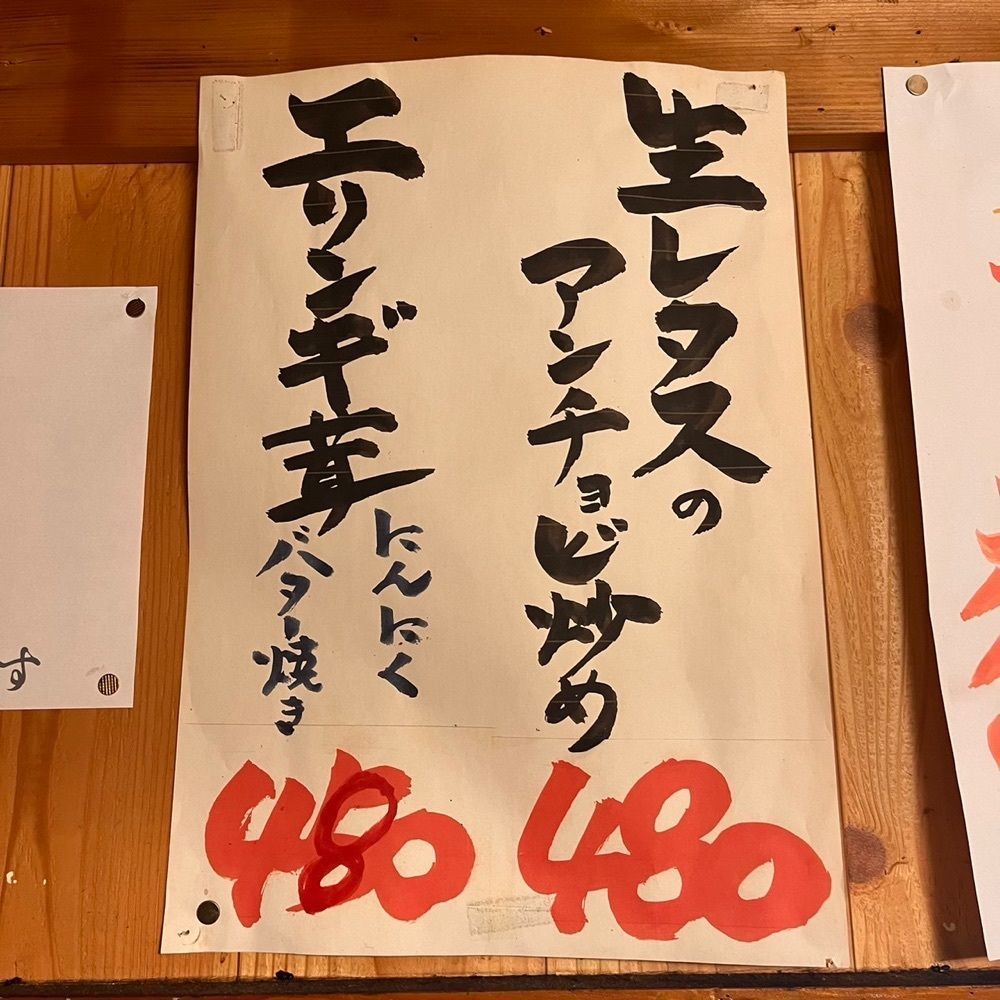 生レタスの
アンチョビ炒め
480
エリンギ茸
にんにく
バター焼き
480
す